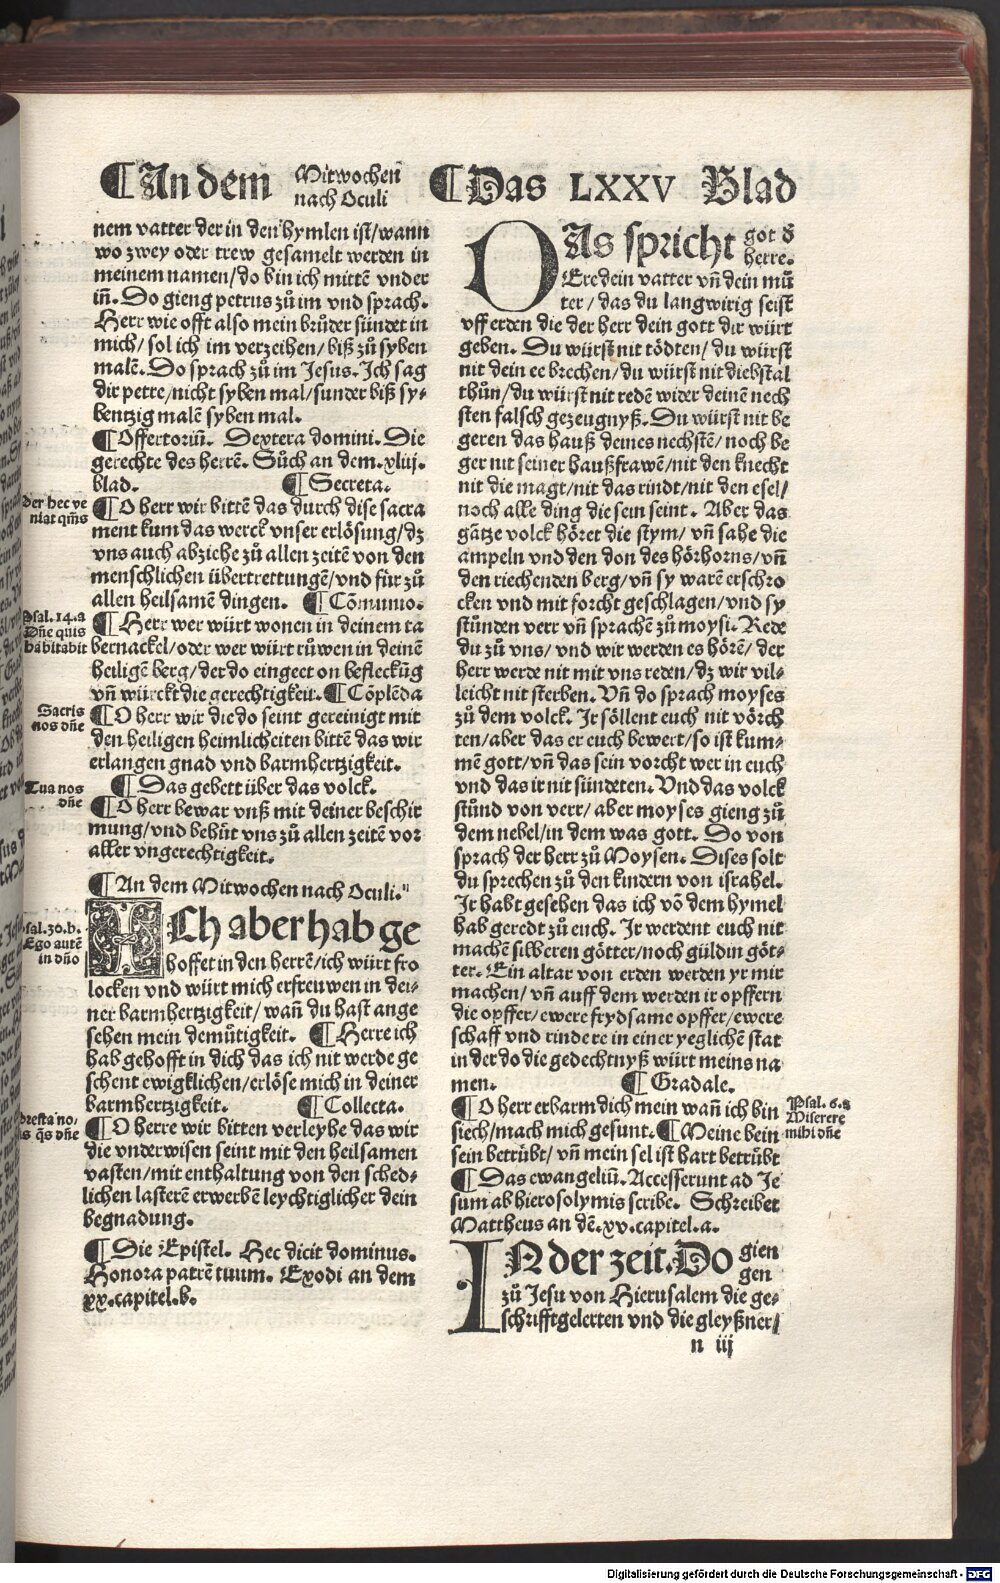 ¶An dem Mitwochen nach Oculi
¶Das LXXV Blad
nem vatter der in den hymlen ist/wann
wo zwey oder trew gesamelt werden in
meinem namen/do bin ich mittē vnder
in̄. Do gieng petrus zů im vnd sprach.
Herr wie offt also mein brůder sündet in
mich/sol ich im verzeihen/biß zů syben
malē. Do sprach zů im Jesus. Ich sag
dir petre/nicht syben mal/sunder biß sy-
bentzig malē syben mal.
¶Offertoriū. Dextera domini. Die
gerechte des herrē. Sůch an dem .xliij.
blad. ¶Secreta.
¶O herr wir bittē das durch dise sacra
ment kum das werck vnser erlösung/dz
vns auch abziehe zů allen zeitē von den
menschlichen übertrettungē/vnd für zů
allen heilsamē dingen. ¶Cōmunio.
¶Herr wer würt wonen in deinem ta
bernackel/oder wer würt růwen in deinē
heiligē berg/der do eingeet on befleckūg
vn̄ würckt die gerechtigkeit. ¶Cōplēda
¶O herr wir die do seint gereinigt mit
den heiligen heimlicheiten bittē das wir
erlangen gnad vnd barmhertzigkeit.
¶Das gebett über das volck.
¶O herr bewar vnß mit deiner beschir
mung/vnd behůt vns zů allen zeitē vor
aller vngerechtigkeit.
¶An dem Mitwochen nach Oculi.
ICh aber hab ge
hoffet in den herrē/ich würt fro
locken vnd würt mich erfreuwen in dei-
ner barmhertzigkeit/wan̄ du hast ange
sehen mein demůtigkeit. ¶Herre ich
hab gehofft in dich das ich nit werde ge
schent ewigklichen/erlöse mich in deiner
barmhertzigkeit. ¶Collecta.
¶O herre wir bitten verleyhe das wir
die vnderwisen seint mit den heilsamen
vasten/mit enthaltung von den sched-
lichen lasterē erwerbē leychtiglicher dein
begnadung.
¶Die Epistel. Hec dicit dominus.
Honora patrē tuum. Exodi an dem
xx.capitel.b.
der hec ve
niat qm̄s
Psal.14.a
Dn̄e quis
habitabit
Sacris
nos dn̄e
Tua nos
dn̄e
sal.30.b.
Ego autē
in dn̄o
DAs spricht got d
herre.
Ere dein vatter vn̄ dein mů
ter/das du langwirig seist
vff erden die der herr dein gott dir würt
geben. Du würst nit tödten/du würst
nit dein ee brechen/du würst nit diebstal
thůn/du würst nit redē wider deinē nech
sten falsch gezeugnyß. Du würst nit be
geren das hauß deines nechstē/noch be
ger nit seiner haußfrawē/nit den knecht
nit die magt/nit das rindt/nit den esel/
noch alle ding die sein seint. Aber das
gātze volck höret die stym/vn̄ sahe die
ampeln vnd den don des hörhorns/vn̄
den riechenden berg/vn̄ sy warē erschro
cken vnd mit forcht geschlagen/vnd sy
stůnden verr vn̄ sprachē zů moysi. Rede
du zů vns/vnd wir werden es hörē/der
herr werde nit mit vns reden/dz wir vil-
leicht nit sterben. Vn̄ do sprach moyses
zů dem volck. Ir söllent euch nit vörch
ten/aber das er euch bewert/so ist kum-
mē gott/vn̄ das sein vorcht wer in euch
vnd das ir nit sündeten. Vnd das volck
stůnd von verr/aber moyses gieng zů
dem nebel/in dem was gott. Do von
sprach der herr zů Moysen. Dises solt
du sprechen zů den kindern von israhel.
Ir habt gesehen das ich vō dem hymel
hab geredt zů euch. Ir werdent euch nit
machē silberen götter/noch güldin göt-
ter. Ein altar von erden werden yr mir
machen/vn̄ auff dem werden ir opffern
die opffer/ewere frydsame opffer/ewere
schaff vnd rindere in einer yeglichē stat
in der do die gedechtnyß würt meins na
men. ¶Gradale.
¶O herr erbarm dich mein wan̄ ich bin
siech/mach mich gesunt. ¶Meine bein
sein betrübt/vn̄ mein sel ist hart betrübt
¶Das ewangeliū. Accesserunt ad Je
sum ab hierosolymis scribe. Schreibet
Mattheus an dē.xv.capitel.a.
IN der zeit. Do gien
gen
zů Jesu von Hierusalem die ge-
schrifftgelerten vnd die gleyßner/
Psal.6.a
Miserere
mihi dn̄e
n iij
Digitalisierung gefördert durch die Deutsche Forschungsgemeinschaft - DFG